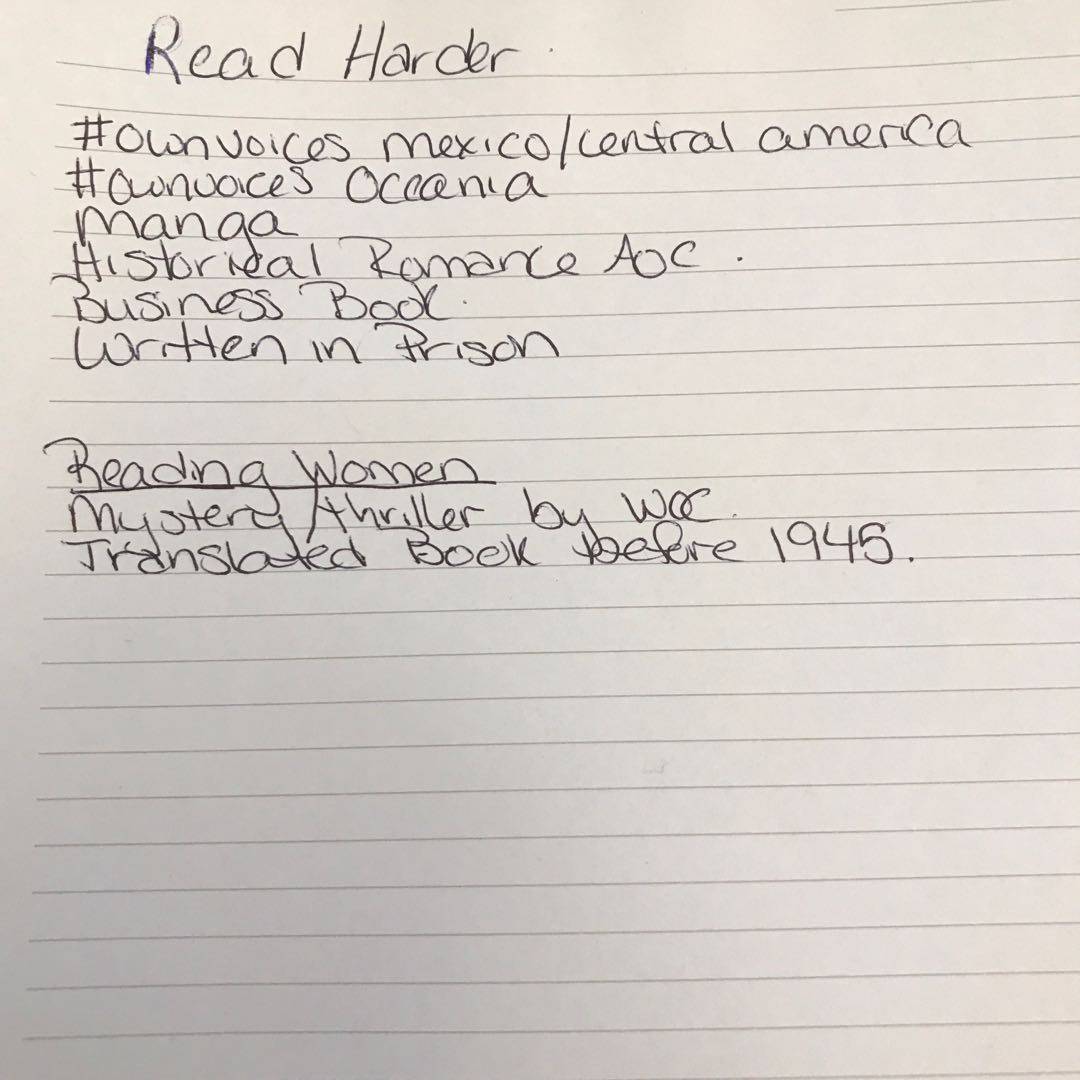 Read Harder
#ownvoices mexico/central america
#ownvoices Oceania
Manga
Historical Romance AOC.
Business Book.
Written in Prison
Reading Women
Mystery/thriller by WOC.
Translated Book before 1945.